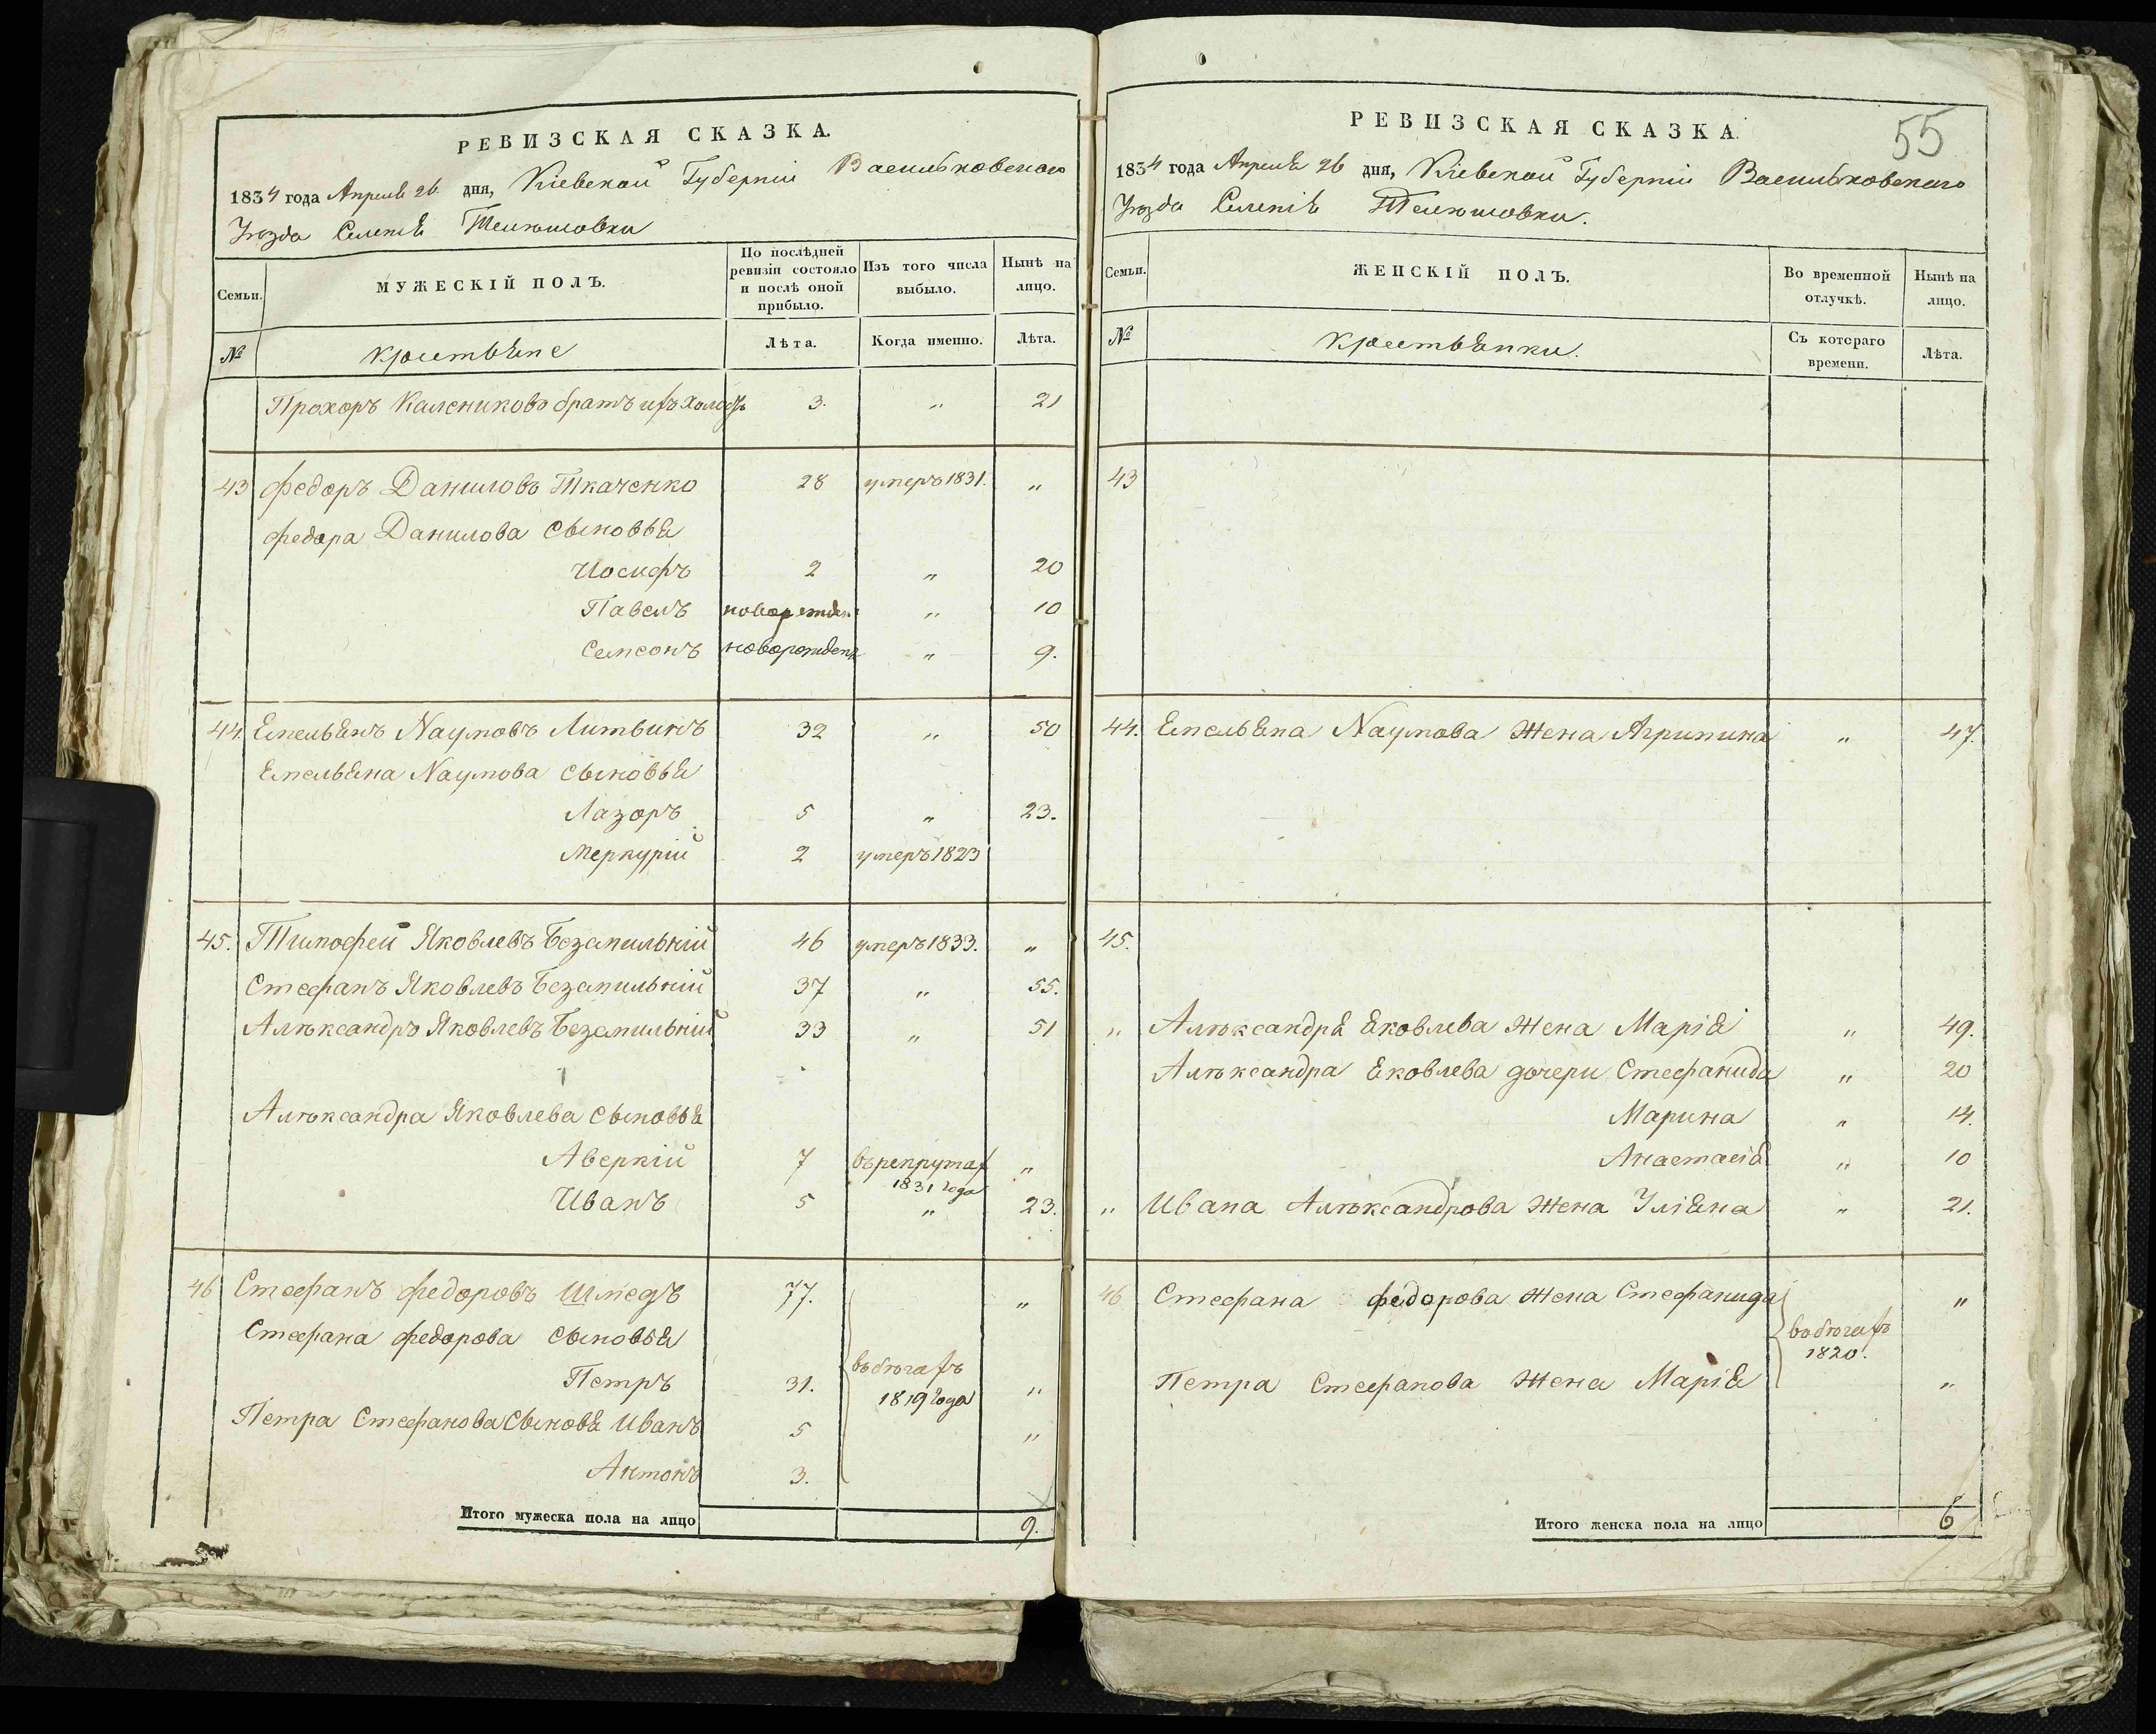 РЕВИЗСКАЯ СКАЗКА.
1834 года Апреля 26 дня, Кіевской Губерніи Васильковского
Уезда Селенія Телюшовки
Семьи. МУЖЕСКІЙ ПОЛЪ. По послѣдней ревизіи состояло и послѣ оной прибыло. Изъ того числа выбыло. Нынѣ на лицо.
№ крестьяне Лѣта. Когда именно. Лѣта.
Прохоръ Калениковъ братъ ихъ 3. „ 21
43 Федоръ Даниловъ Ткаченко 28 умеръ 1831. „
Федора Данилова сыновья
Иосифъ 2 „ 20
Павелъ новорожден „ 10
Самсонъ новорожденъ „ 9.
44. Емельянъ Наумовъ Литвинъ 32 „ 50
Емельяна Наумова сыновья
Лазоръ 5 „ 23.
Меркурій 2 умеръ 1823
45. Тимофей Яковлевъ Безпильній 46 умеръ 1833. „
Стефанъ Яковлевъ 37 „ 55.
Алѣксандръ Яковлевъ 33 „ 51
Алѣксандра Яковлева сыновья
Аверкій 7 въ рекрутах 1831 года „
Иванъ 5 „ 23.
46 Стефанъ Федоровъ 77. „
Стефана Федорова сыновья
Петръ 31. въ бѣгахъ 1819 года „
Петра Стефанова сыновя Иванъ 5 „
Антонъ 3.
Итого мужеска пола на лицо 9.
55
РЕВИЗСКАЯ СКАЗКА.
1834 года Апреля 26 дня, Кіевской Губерніи Васильковскаго
Уезда Селенія Телюшовки.
Семьи. ЖЕНСКІЙ ПОЛЪ. Во временной отлучкѣ. Нынѣ на лицо.
№ крестьянки. Съ котораго времени. Лѣта.
43
44. Емельяна Наумова жена Агрипина „ 47.
45.
„ Алѣксандра Яковлева жена Марія „ 49.
Алѣксандра Яковлева дочери Стефанида „ 20
Марина „ 14.
Анастасія „ 10
„ Ивана Алѣксандрова жена Уліяна „ 21.
46 Стефана Федорова жена Стефанида „
въ бѣгахъ 1820.
Петра Стефанова жена Марія „
Итого женска пола на лицо 6